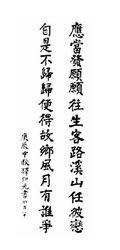 應當發願願往生客路溪山任彼戀
自是不歸歸便得故鄉風月有誰爭
庚辰中秋